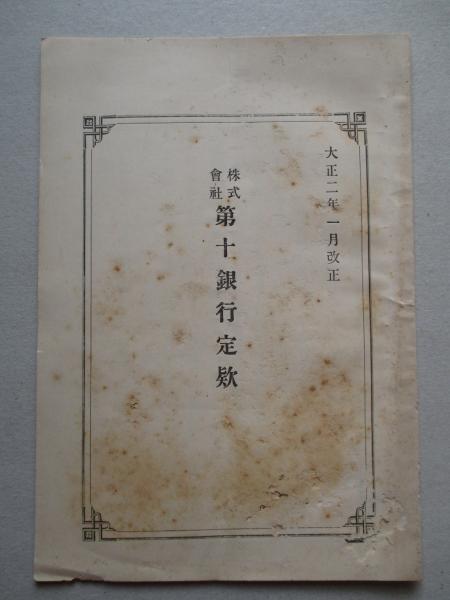 大正二年一月改正
株式會社第十銀行定欵